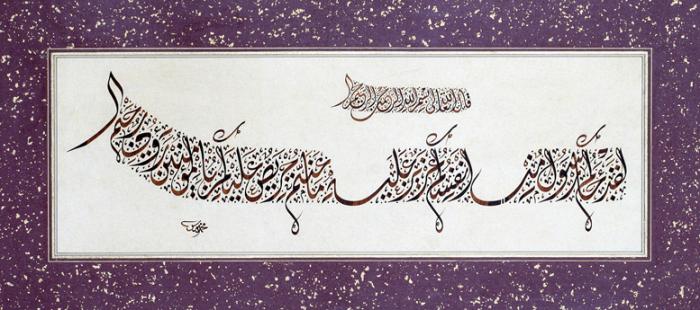 قال الله تعالى بسم الله الرحمن الرحيم
لقد جاءكم رسول من أنفسكم عزيز عليه ما عنتم حريص عليكم بالمؤمنين رؤوف رحيم